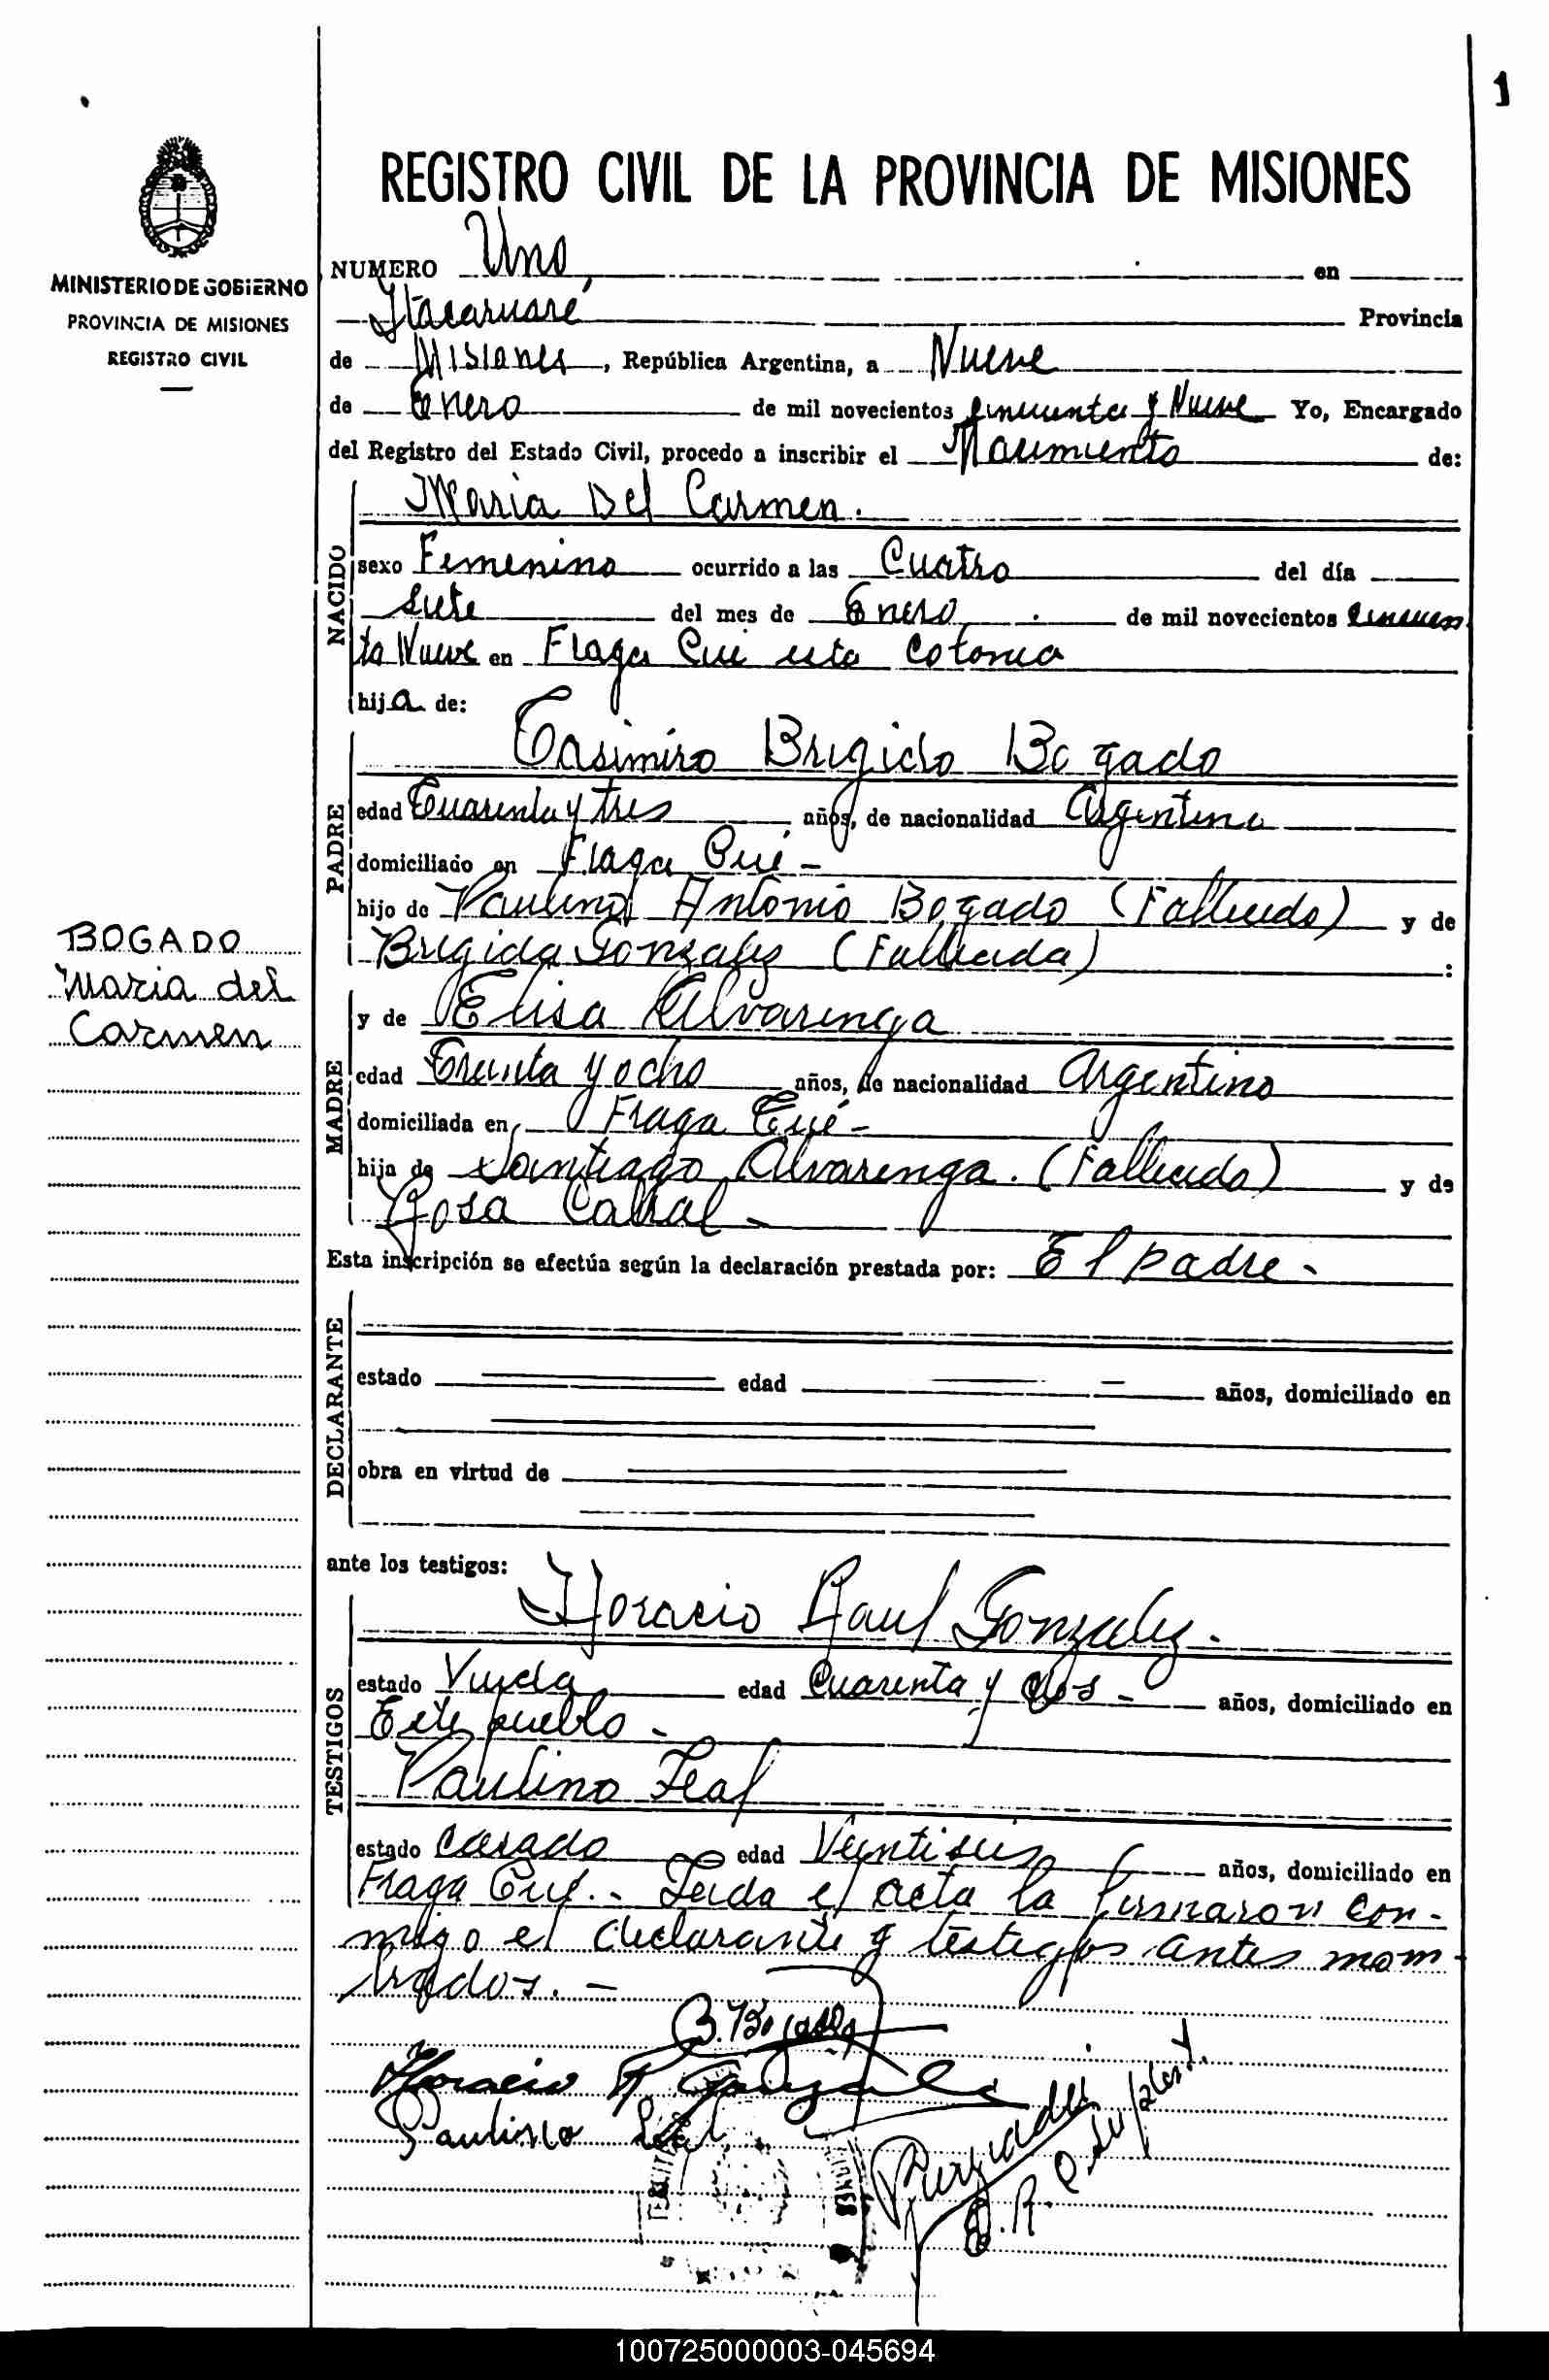 1
MINISTERIO DE GOBIERNO
PROVINCIA DE MISIONES
REGISTRO CIVIL
BOGADO
Maria del
Carmen
REGISTRO CIVIL DE LA PROVINCIA DE MISIONES
NUMERO Uno, en
Itacaruaré Provincia
de Misiones, República Argentina, a Nueve
de Enero de mil novecientos cincuenta y Nueve Yo, Encargado
del Registro del Estado Civil, procedo a inscribir el Nacimiento de:
NACIDO
Maria Del Carmen.
sexo Femenino ocurrido a las Cuatro del día
siete del mes de Enero de mil novecientos cincuen
ta Nueve en Fraga Cué esta Colonia
hija de:
PADRE
Casimiro Brigido Bogado
edad Cuarenta y tres años, de nacionalidad Argentina
domiciliado en Fraga Cué -
hijo de Paulino Antonio Bogado (Fallecido) y de
Brigida Gonzalez (Fallecida) :
MADRE
y de Elisa Alvarenga
edad Treinta y ocho años, de nacionalidad Argentino
domiciliada en Fraga Cué -
hija de Santiago Alvarenga. (Fallecido) y de
Rosa Cabral -
Esta inscripción se efectúa según la declaración prestada por: El padre -
DECLARANTE
estado edad años, domiciliado en
obra en virtud de
ante los testigos:
TESTIGOS
Horacio Raul Gonzalez -
estado Viudo edad Cuarenta y dos - años, domiciliado en
Este pueblo -
Paulino Leal
estado Casado edad Veintiseis años, domiciliado en
Fraga Cué. - Leida el acta la firmaron con-
migo el declarante y testigos antes nom
brados. -
B. Bogado
Horacio R Gonzalez
Paulino Leal
100725000003-045694